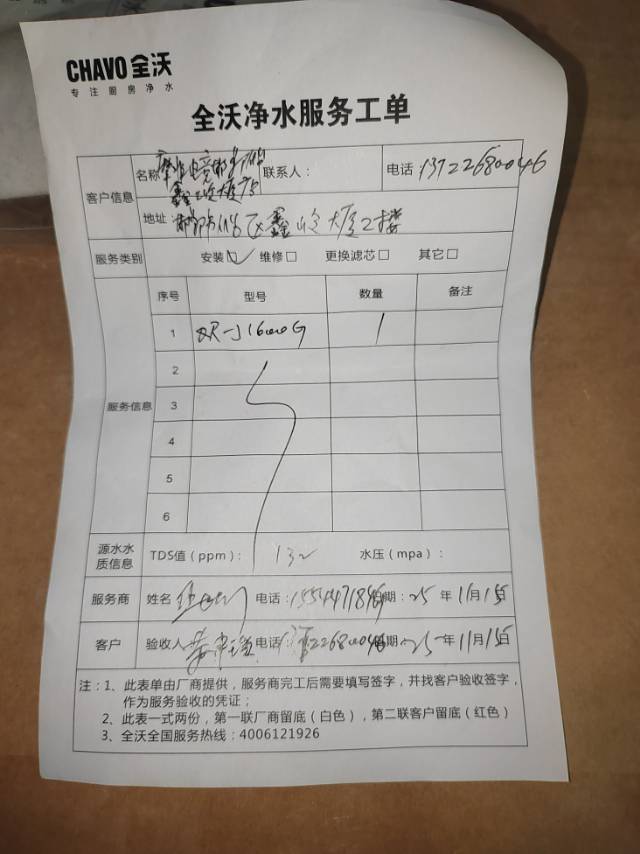 CHAVO 全沃
专注厨房净水
全沃净水服务工单
客户信息 名称 联系人： 电话 13722680046
鑫 大厦
地址： 区鑫 大厦2楼
服务类别 安装☑ 维修□ 更换滤芯□ 其它□
服务信息
序号 型号 数量 备注
1 1600G 1
2
3
4
5
6
源水水质信息 TDS值（ppm）： 132 水压（mpa）：
服务商 姓名 电话： 期：25 年 11月15日
客户 验收人 电话 期 25 年 11月15日
注：1、此表单由厂商提供，服务商完工后需要填写签字，并找客户验收签字，
作为服务验收的凭证；
2、此表一式两份，第一联厂商留底（白色），第二联客户留底（红色）
3、全沃全国服务热线：4006121926